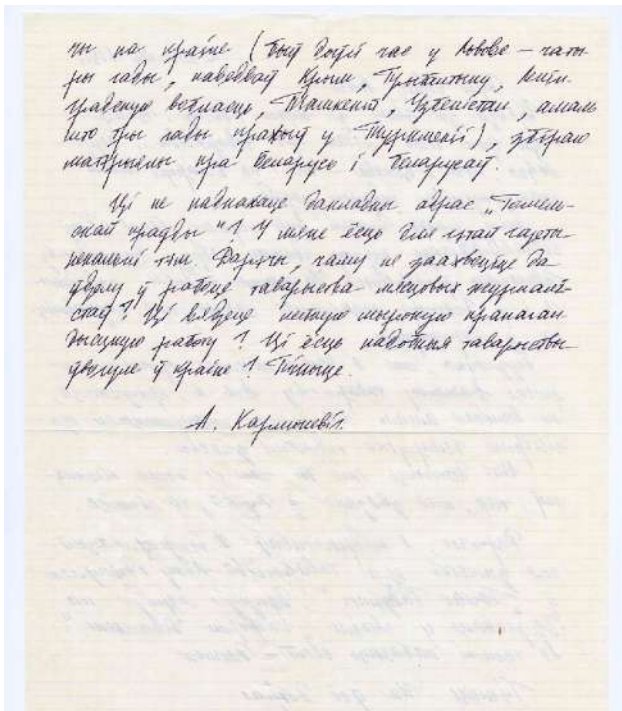 чы па краіне (быў доўгі час у Львове — чаты-
ры гады, наведваў Крым, Прыбалтыку, Ленін-
градскую вобласць, Ташкент, Узбекістан, амаль
што тры гады пражыў у Туркменіі), збіраю
матэрыялы пра Беларусь і беларусаў.
Ці не падкажаце дакладны адрас „Гомель-
скай праўды"? У мяне ёсць для гэтай газеты
некалькі тэм. Дарэчы, чаму не заахвоціце да
удзелу ў рабоце таварыства мясцовых журналі-
стаў? Ці вядзеце нейкую шырокую прапаган-
дысцкую работу? Ці ёсць падобныя таварыствы
ўвогуле ў краіне? Пішыце.
А. Карлюкевіч.